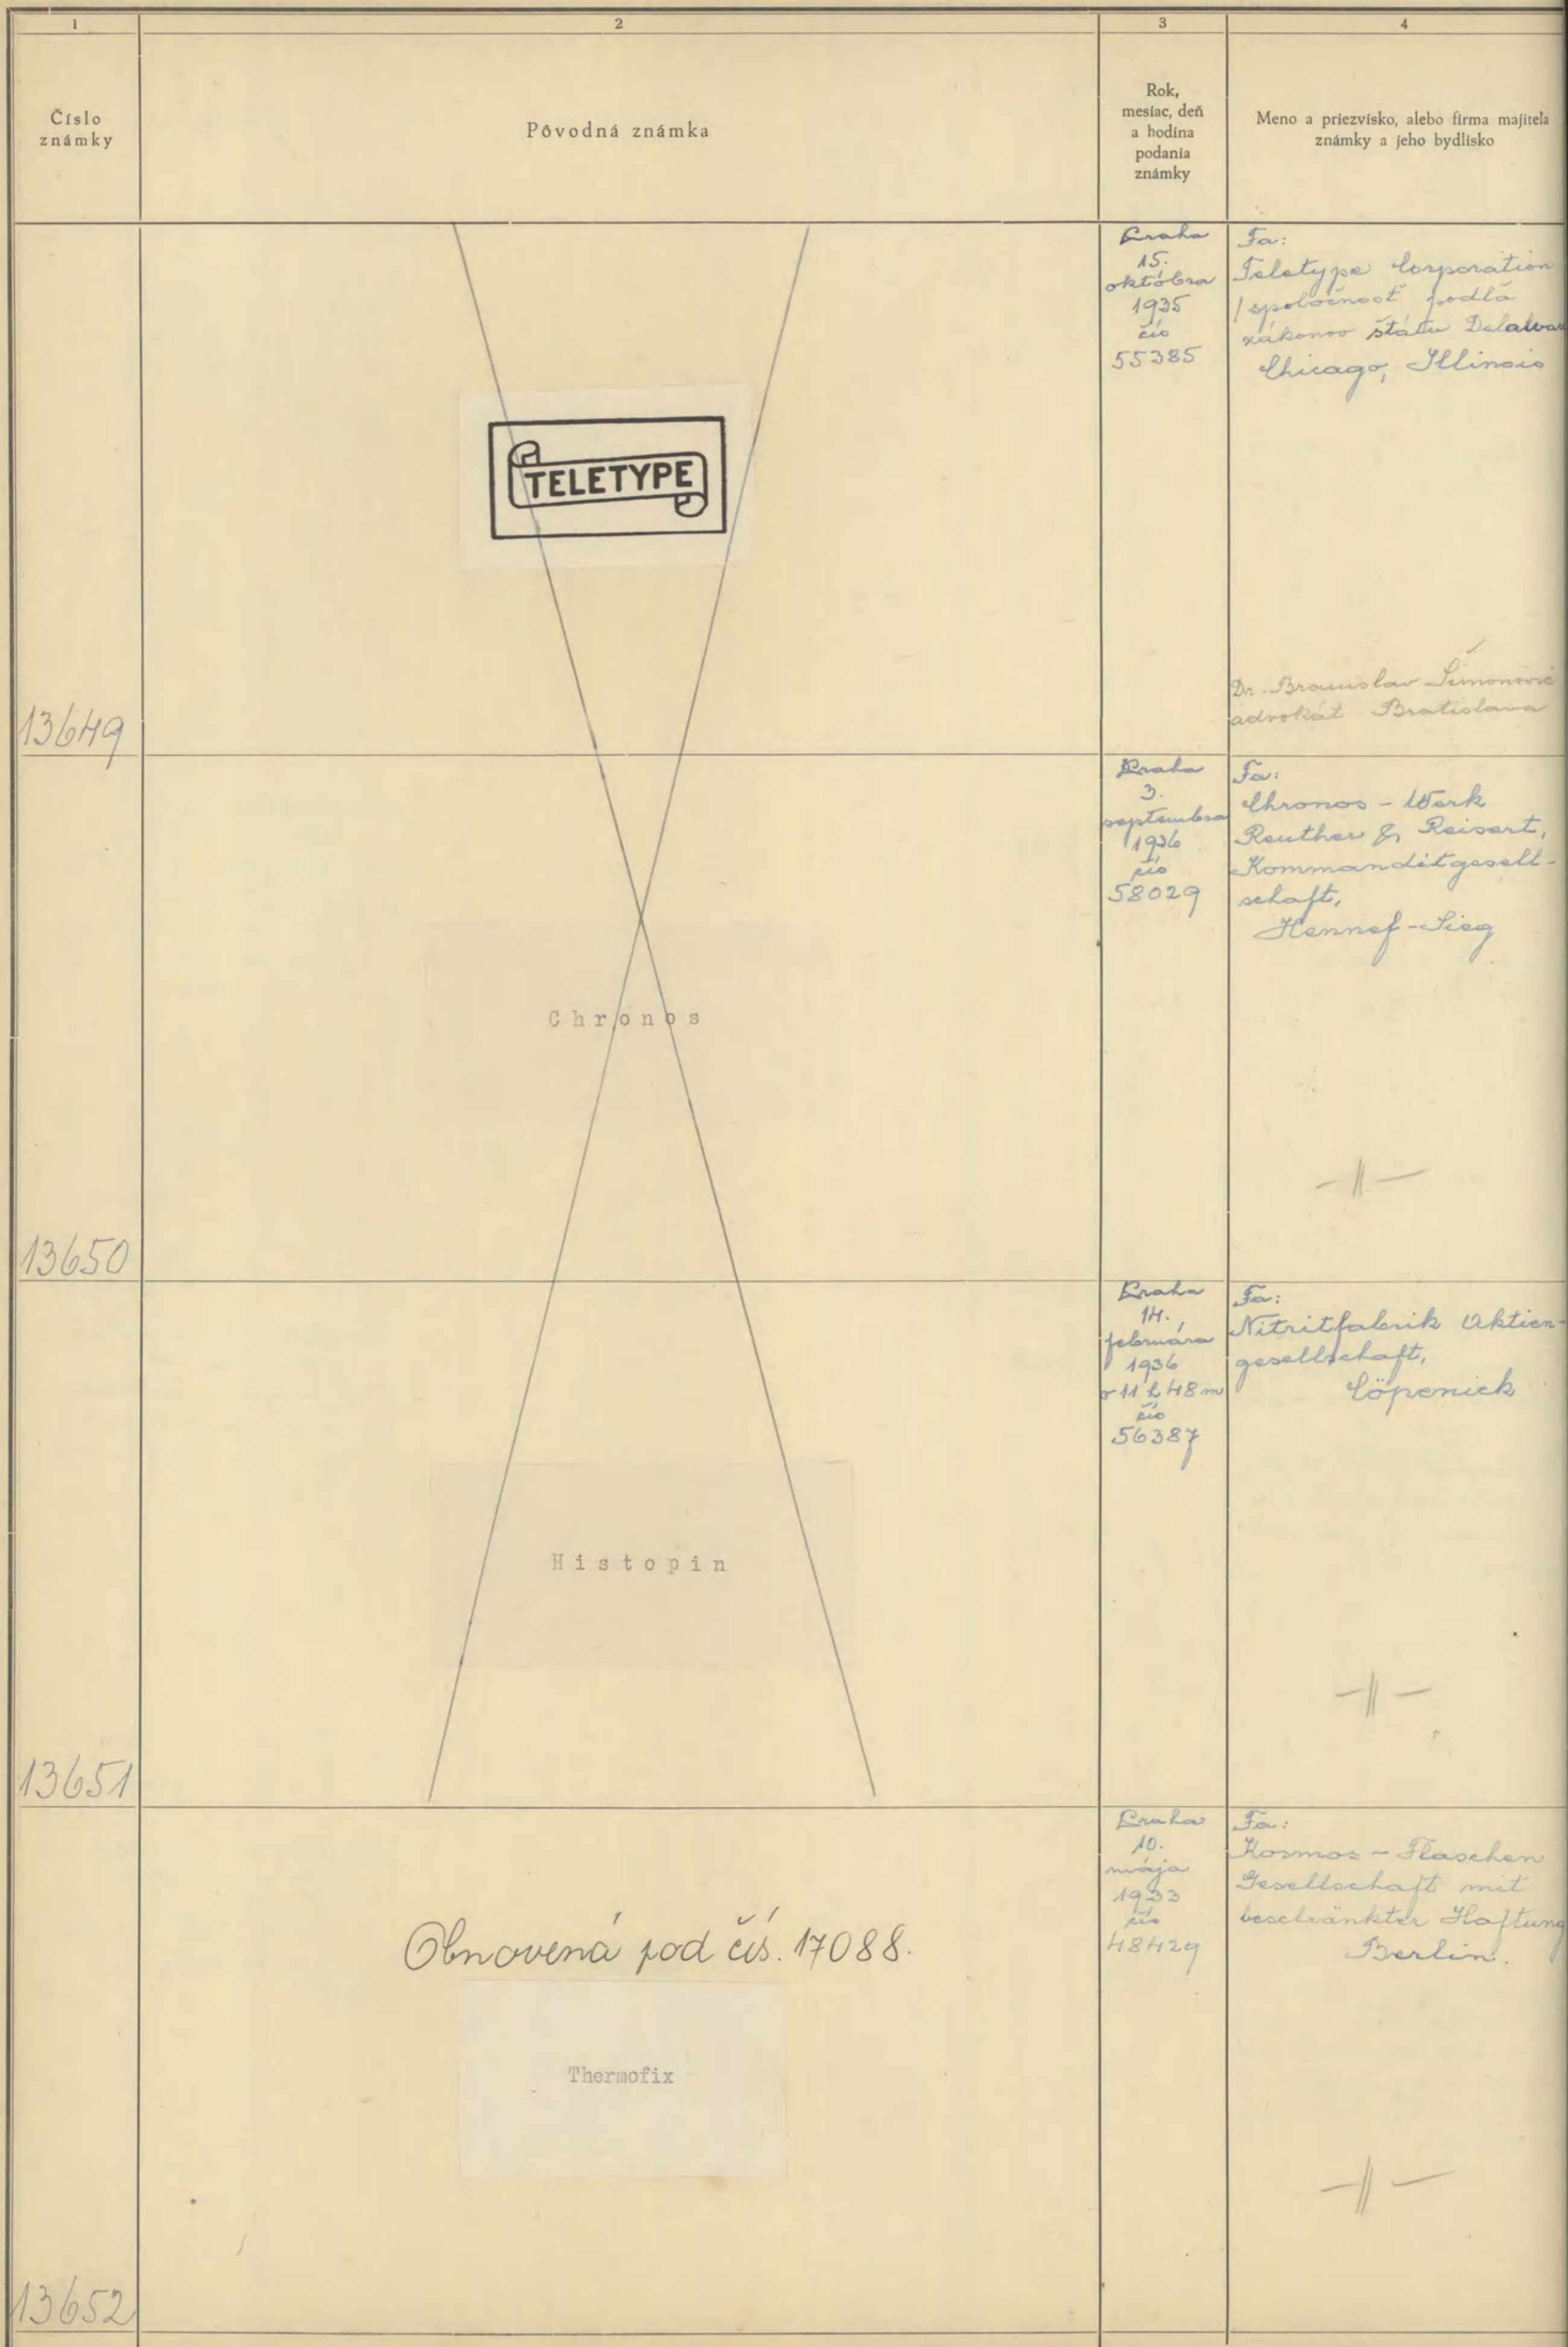 1
2
3
4
Číslo
známky
Pôvodná známka
Rok,
mesiac, deň
a hodina
podania
známky
Meno a priezvisko, alebo firma majiteľa
známky a jeho bydlisko
13649
TELETYPE
Praha
15.
októbra
1935
čís
55385
Fa:
Teletype Corporation
/ spoločnosť podľa
zákonov štátu Delawar
Chicago, Illinois
Dr. Branislav Šimonovič
advokát Bratislava
13650
Chronos
Praha
3.
septembra
1936
čís
58029
Fa:
Chronos - Werk
Reuther & Reisert,
Kommanditgesell-
schaft,
Hennef-Sieg
-||-
13651
Histopin
Praha
14.
februára
1936
o 11 h 48 m
čís
56387
Fa:
Nitritfabrik Aktien-
gesellschaft,
Cöpenick
-||-
13652
Obnovená pod čís. 17088.
Thermofix
Praha
10.
mája
1933
čís
48429
Fa:
Kosmos - Flaschen
Gesellschaft mit
beschränkter Haftung
Berlin.
-||-